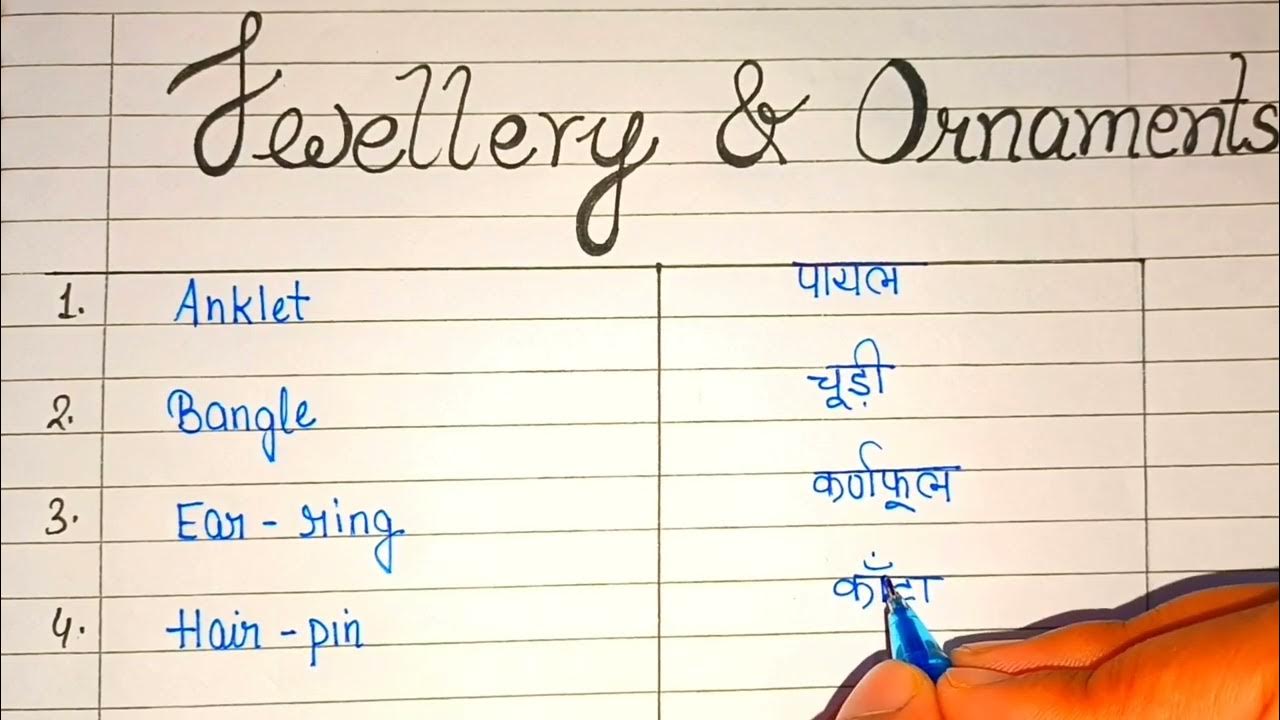 Jewellery & Ornaments
1. Anklet पायल
2. Bangle चूड़ी
3. Ear-ring कर्णफूल
4. Hair-pin काँटा